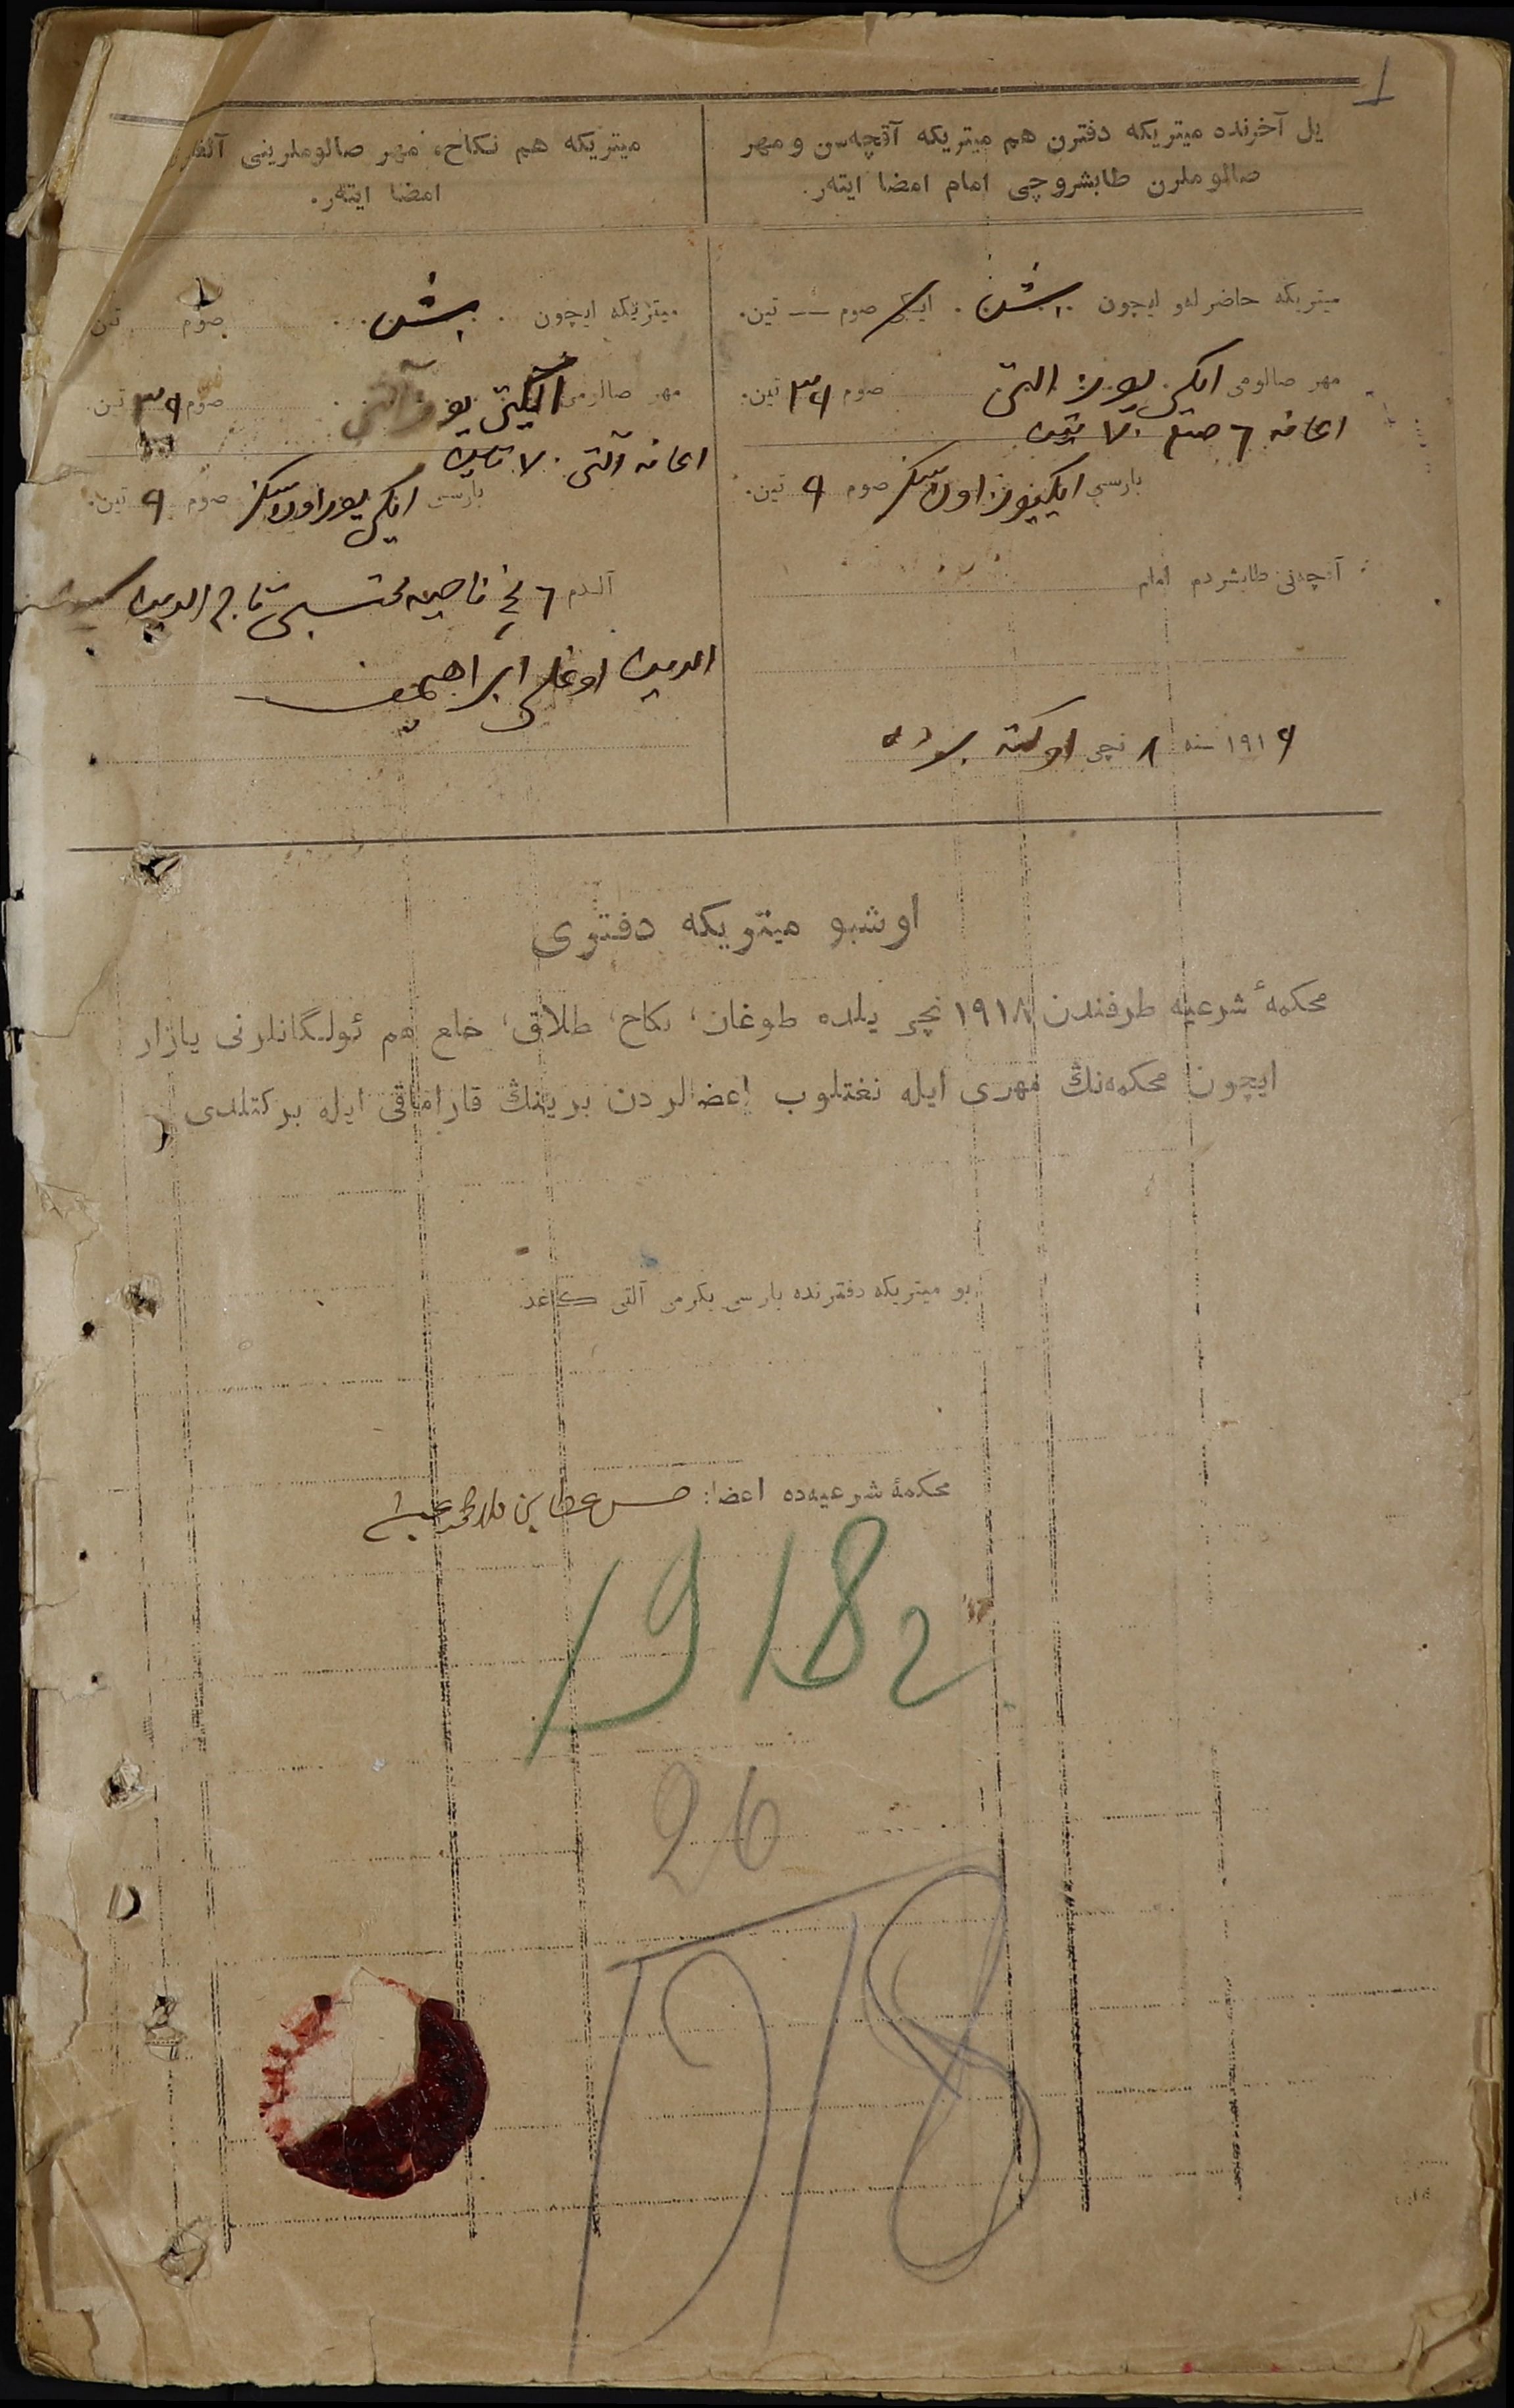 1
یل آخرنده میتریکه دفترن هم میتریکه آقچه‌سن و مهر
صالوملرن طابشروچی امام امضا ایته‌ر.
میتریکه حاضرله‌و ایچون بش صوم — تین.
مهر صالومی ایکی یوز التی صوم ٣٩ تین.
اعانه ٦ صوم ٧٠ تین
بارسی ایکییوز اون سکز صوم ٩ تین.
آقچه‌نی طابشردم امام
١٩١٩ سنه ٨ نچی اوکتەبردە
میتریکه هم نکاح، مهر صالوملرینی
امضا ایته‌ر.
میتریکه ایچون بش صوم تین
مهر صالومی ایکی یوز آلتی صوم ٣٩ تین.
اعانه آلتی ٧٠ تین
بارسی ایکی یوز اون سکز صوم ٩ تین.
آلدم ٦ نچی ناحیه محتسبی تاج الدین
الدین اوغلی ابراهیمف
اوشبو میتریکه دفتری
محکمهٔ شرعیه طرفندن ١٩١٨ نچی یلده طوغان، نکاح، طلاق، خلع هم ئولگانلرنی یازار
ایچون محکمه‌نڭ مهری ایله نغتلوب اعضالردن برینڭ قاراماقی ایله برکتلدی
بو میتریکه دفترنده بارسی یکرمی آلتی کاغد.
محکمهٔ شرعیه‌ده اعضا: حسن عطا بن
1918 г
26
1918